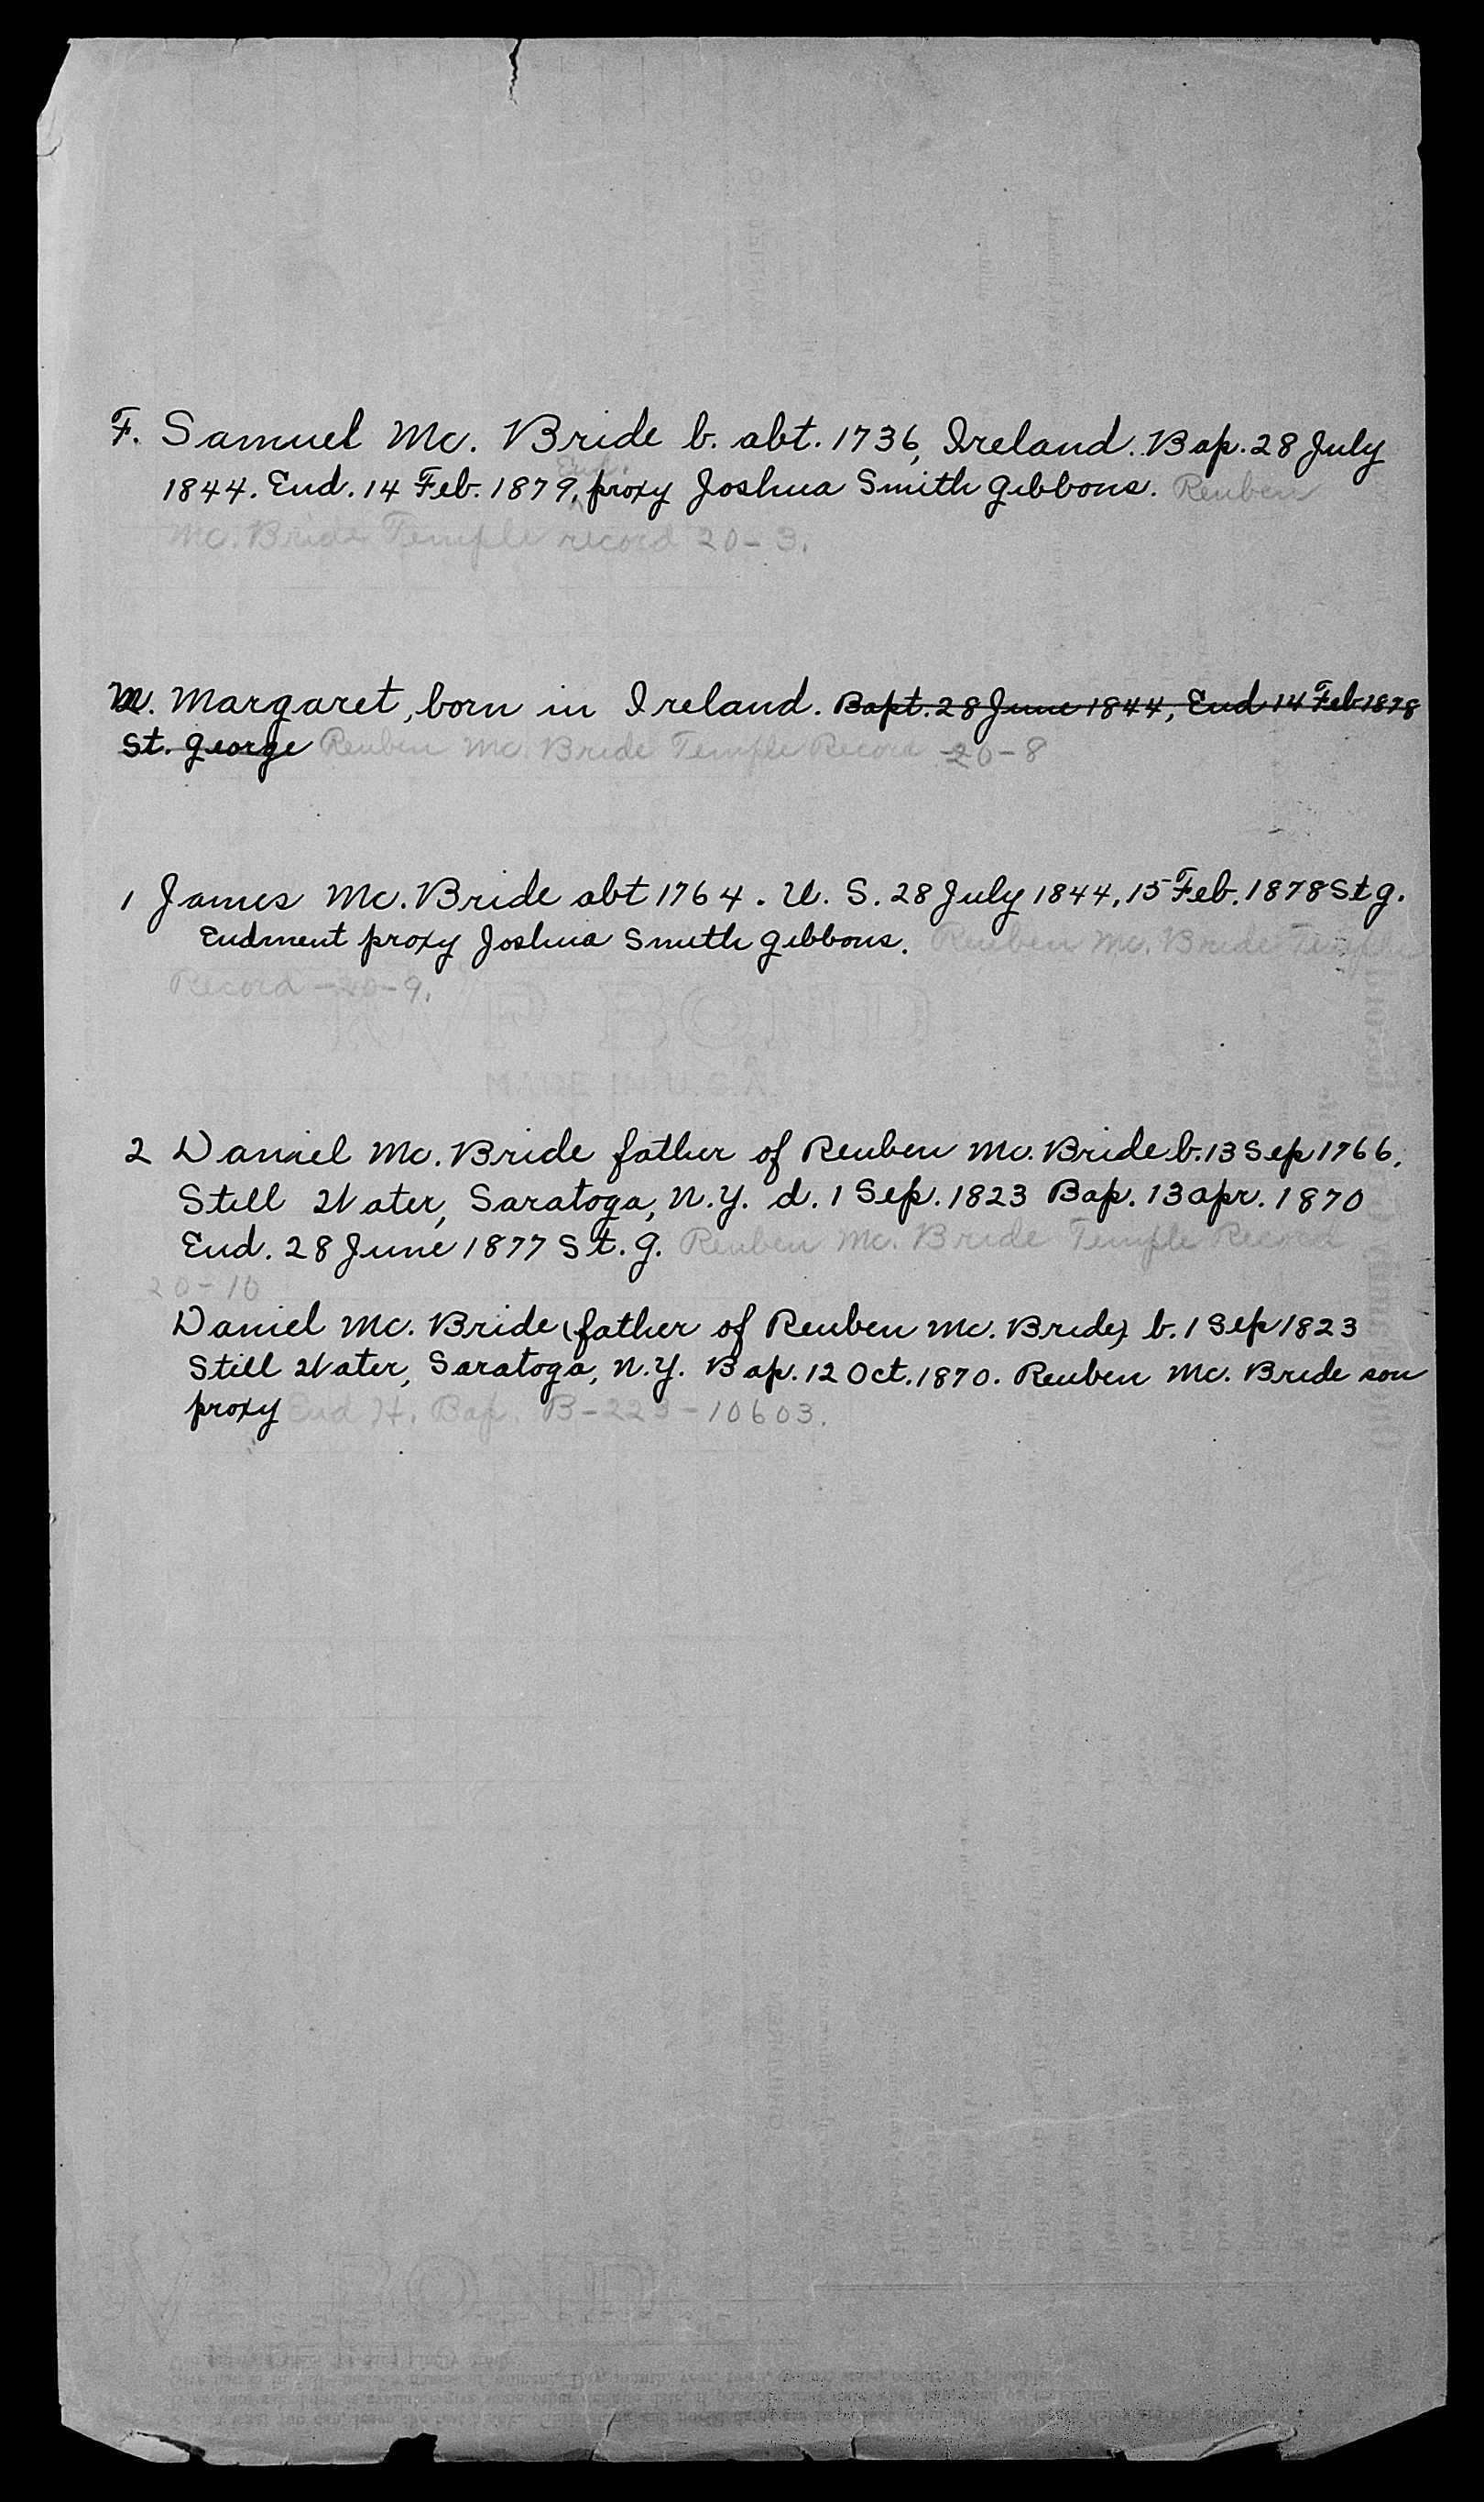 F. Samuel Mc. Bride b. abt. 1736, Ireland. Bap. 28 July
End.
1844. End. 14 Feb. 1879, proxy Joshua Smith Gibbons. Reuben
Mc. Bride Temple record 20-3.
M. Margaret, born in Ireland. Bapt. 28 June 1844, End 14 Feb 1878
St. George Reuben Mc. Bride Temple Record 20-8
1 James Mc. Bride abt 1764. U. S. 28 July 1844, 15 Feb. 1878 St g.
Endment proxy Joshua Smith Gibbons. Reuben Mc. Bride Temple
Record -20-9.
KVP BOND
MADE IN U.S.A.
2 Daniel Mc. Bride father of Reuben Mc. Bride b. 13 Sep 1766,
Still Water, Saratoga, N.Y. d. 1 Sep. 1823 Bap. 13 apr. 1870
End. 28 June 1877 St. g. Reuben Mc. Bride Temple Record
20-10
Daniel Mc. Bride (father of Reuben Mc. Bride) b. 1 Sep 1823
Still Water, Saratoga, N.Y. Bap. 12 Oct. 1870. Reuben Mc. Bride son
proxy End H. Bap. B-223-10603.
VP BOND